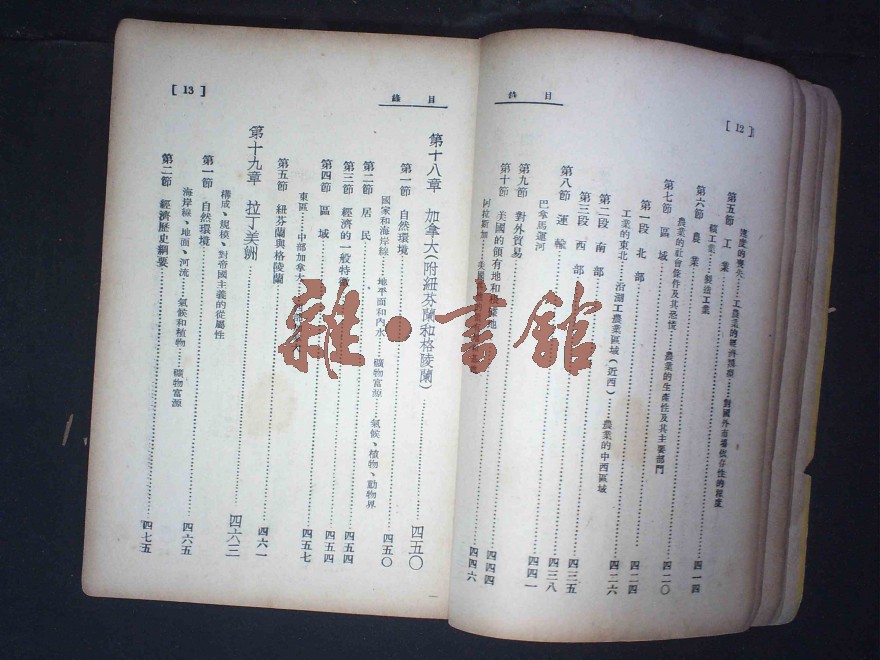 [ 12 ]
目 錄
第五節 工業……四一四
礦工業……製造工業
第六節 農業
農業的社會條件及其恐慌……農業的生產性及其主要部門
第七節 區域……四二〇
第一段 北部……四二四
工業的東北……沿湖工農業區域(近西)……農業的中西區域
第二段 南部……四二六
第三段 西部……四三五
第八節 運輸……四三八
巴拿馬運河
第九節 對外貿易……四四一
第十節 美國的領有地和根據地……四四四
阿拉斯加……四四六
目 錄
[ 13 ]
第十八章 加拿大(附紐芬蘭和格陵蘭)……四五〇
第一節 自然環境……四五〇
國家和海岸線……地平面和內水……礦物富源……氣候、植物、動物界
第二節 居民……四五四
第三節 經濟的一般特徵……四五四
第四節 區域……四五七
東區……中部加拿大
第五節 紐芬蘭與格陵蘭……四六一
第十九章 拉丁美洲……四六三
構成、規模、對帝國主義的從屬性
第一節 自然環境……四六五
海岸線、地面、河流……氣候和植物……礦物富源
第二節 經濟歷史綱要……四七五
雜·書館